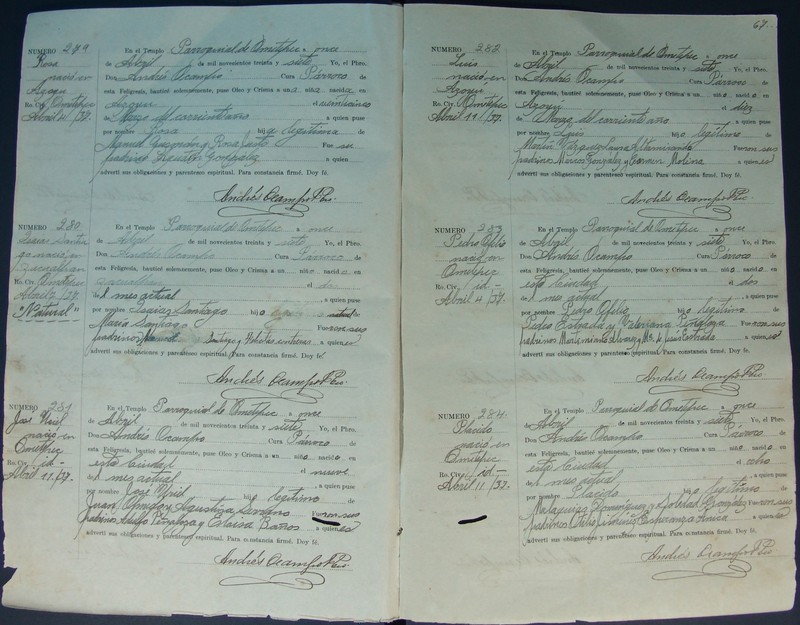 NUMERO 279
Rosa
nació en
Azoyú
Ro. Civ. Ometepec
Abril 4/37.
En el Templo Parroquial de Ometepec a once
de Abril de mil novecientos treinta y siete Yo, el Pbro.
Don Andrés Ocampo Cura Párroco de
esta Feligresía, bauticé solemnemente, puse Oleo y Crisma a una niña nacida en
Azoyú el veinticinco
de Marzo del corriente año a quien puse
por nombre Rosa hija legítima de
Manuel y Rosa Justo Fue su
padrino Agustín González a quien
advertí sus obligaciones y parentesco espiritual. Para constancia firmé. Doy fé.
Andrés Ocampo Pbro.
NUMERO 280
Isaías Santia
go nació en
Ro. Civ. Ometepec
"Natural"
En el Templo Parroquial de Ometepec a once
de Abril de mil novecientos treinta y siete Yo, el Pbro.
Don Andrés Ocampo Cura Párroco de
esta Feligresía, bauticé solemnemente, puse Oleo y Crisma a un niño nacido en
el dos
del mes actual a quien puse
por nombre Isaías Santiago hijo natural de
María Santiago Fueron sus
padrinos a quienes
advertí sus obligaciones y parentesco espiritual. Para constancia firmé. Doy fé.
Andrés Ocampo Pbro.
NUMERO 281
José Uriel
nació en
Ometepec
Ro. Civ. id-
Abril 11/37.
En el Templo Parroquial de Ometepec a once
de Abril de mil novecientos treinta y siete Yo, el Pbro.
Don Andrés Ocampo Cura Párroco de
esta Feligresía, bauticé solemnemente, puse Oleo y Crisma a un niño nacido en
esta Ciudad el nueve
del mes actual a quien puse
por nombre José Uriel hijo legítimo de
Juan Amador y Agustina Serrano Fueron sus
padrinos Adolfo Peñaloza y Baños a quienes
advertí sus obligaciones y parentesco espiritual. Para constancia firmé. Doy fé.
Andrés Ocampo Pbro.
67.
NUMERO 282
Luis
nació en
Azoyú
Ro. Civ. Ometepec
Abril 11/37.
En el Templo Parroquial de Ometepec a once
de Abril de mil novecientos treinta y siete Yo, el Pbro.
Don Andrés Ocampo Cura Párroco de
esta Feligresía, bauticé solemnemente, puse Oleo y Crisma a un niño nacido en
Azoyú el diez
de Marzo del corriente año a quien puse
por nombre Luis hijo legítimo de
Martín Vargas y Laura Altamirano Fueron sus
padrinos Marcos González y Carmen Molina a quienes
advertí sus obligaciones y parentesco espiritual. Para constancia firmé. Doy fé.
Andrés Ocampo Pbro.
NUMERO 283
Pedro Ofelio
nació en
Ometepec
Ro. Civ. id-
Abril 4/37.
En el Templo Parroquial de Ometepec a once
de Abril de mil novecientos treinta y siete Yo, el Pbro.
Don Andrés Ocampo Cura Párroco de
esta Feligresía, bauticé solemnemente, puse Oleo y Crisma a un niño nacido en
esta Ciudad el dos
del mes actual a quien puse
por nombre Pedro Ofelio hijo legítimo de
Pedro Estrada y Valeriana Peñaloza Fueron sus
padrinos Maximiano Alvarez y Ma. de Jesús Estrada a quienes
advertí sus obligaciones y parentesco espiritual. Para constancia firmé. Doy fé.
Andrés Ocampo Pbro.
NUMERO 284
Plácido
nació en
Ometepec
Ro. Civ. id-
Abril 11/37.
En el Templo Parroquial de Ometepec a once
de Abril de mil novecientos treinta y siete Yo, el Pbro.
Don Andrés Ocampo Cura Párroco de
esta Feligresía, bauticé solemnemente, puse Oleo y Crisma a un niño nacido en
esta Ciudad el ocho
del mes actual a quien puse
por nombre Plácido hijo legítimo de
Melaquías Domínguez y Soledad González Fueron sus
padrinos Jiménez y Esperanza a quienes
advertí sus obligaciones y parentesco espiritual. Para constancia firmé. Doy fé.
Andrés Ocampo Pbro.